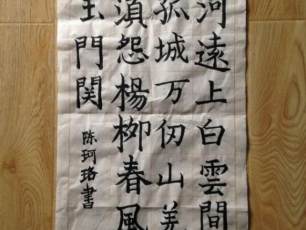 河遠上白雲間
孤城万仞山羌
須怨楊柳春風
玉門関
陈珂珞書